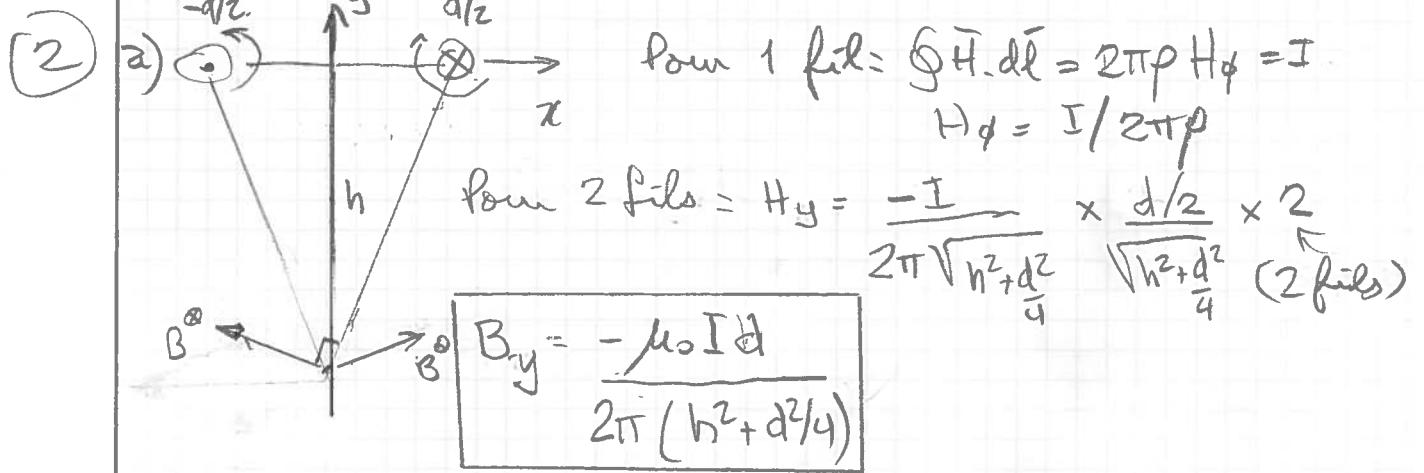 ② a) -d/2 y d/2
x
h
B⊗ B⊙
Pour 1 fil : ∮H̄.dl̄ = 2πρ Hφ = I
Hφ = I/2πρ
Pour 2 fils : Hy = -I / 2π√(h²+d²/4) × d/2 / √(h²+d²/4) × 2
(2 fils)
By = -μ₀Id / 2π(h²+d²/4)